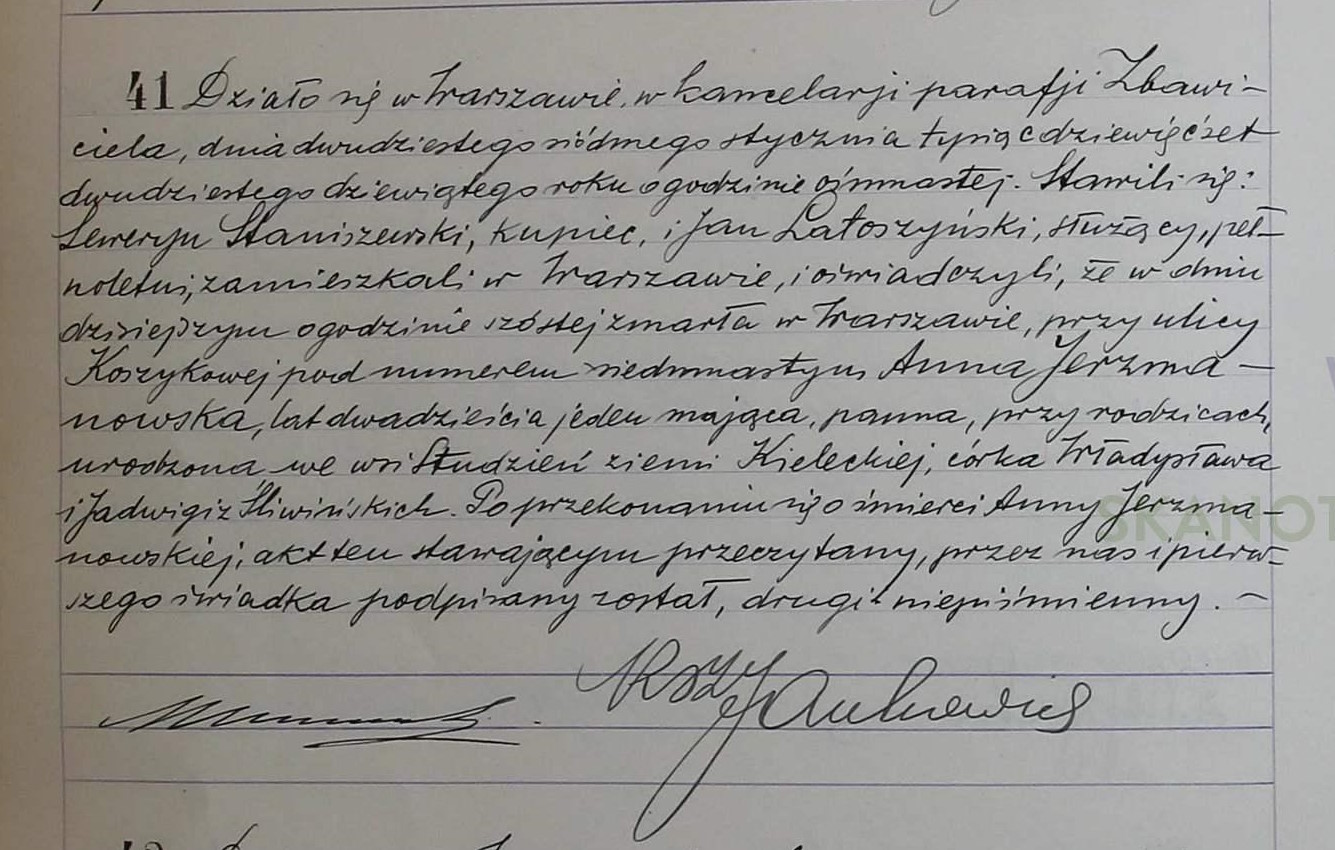 41 Działo się w Warszawie, w kancelarji parafji Zbawi-
ciela, dnia dwudziestego siódmego stycznia tysiąc dziewięćset
dwudziestego dziewiątego roku o godzinie ósmnastej. Stawili się:
Seweryn Staniszewski, kupiec, i Jan Latoszyński, służący, peł-
noletni, zamieszkali w Warszawie, i oświadczyli, że w dniu
dzisiejszym o godzinie szóstej zmarła w Warszawie, przy ulicy
Koszykowej pod numerem siedmnastym Anna Jerzma-
nowska, lat dwadzieścia jeden mająca, panna, przy rodzicach,
urodzona we wsi Studzień ziemi Kieleckiej, córka Władysława
i Jadwigi z Śliwińskich. Po przekonaniu się o śmierci Anny Jerzma-
nowskiej, akt ten stawającym przeczytany, przez nas i pierw-
szego świadka podpisany został, drugi niepiśmienny. -
SKANOT